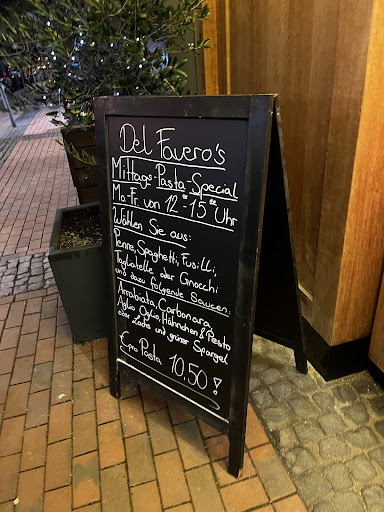 Del Favero's
Mittags-Pasta-Special
Mo-Fr von 12°°-15°° Uhr
Wählen Sie aus:
Penne, Spaghetti, Fusilli,
Tagliatelle oder Gnocchi
und dazu folgende Saucen:
Arrabiata, Carbonara,
Aglio Oglio, Hähnchen & Pesto
oder Lachs und grüner Spargel
€ pro Pasta 10,50!